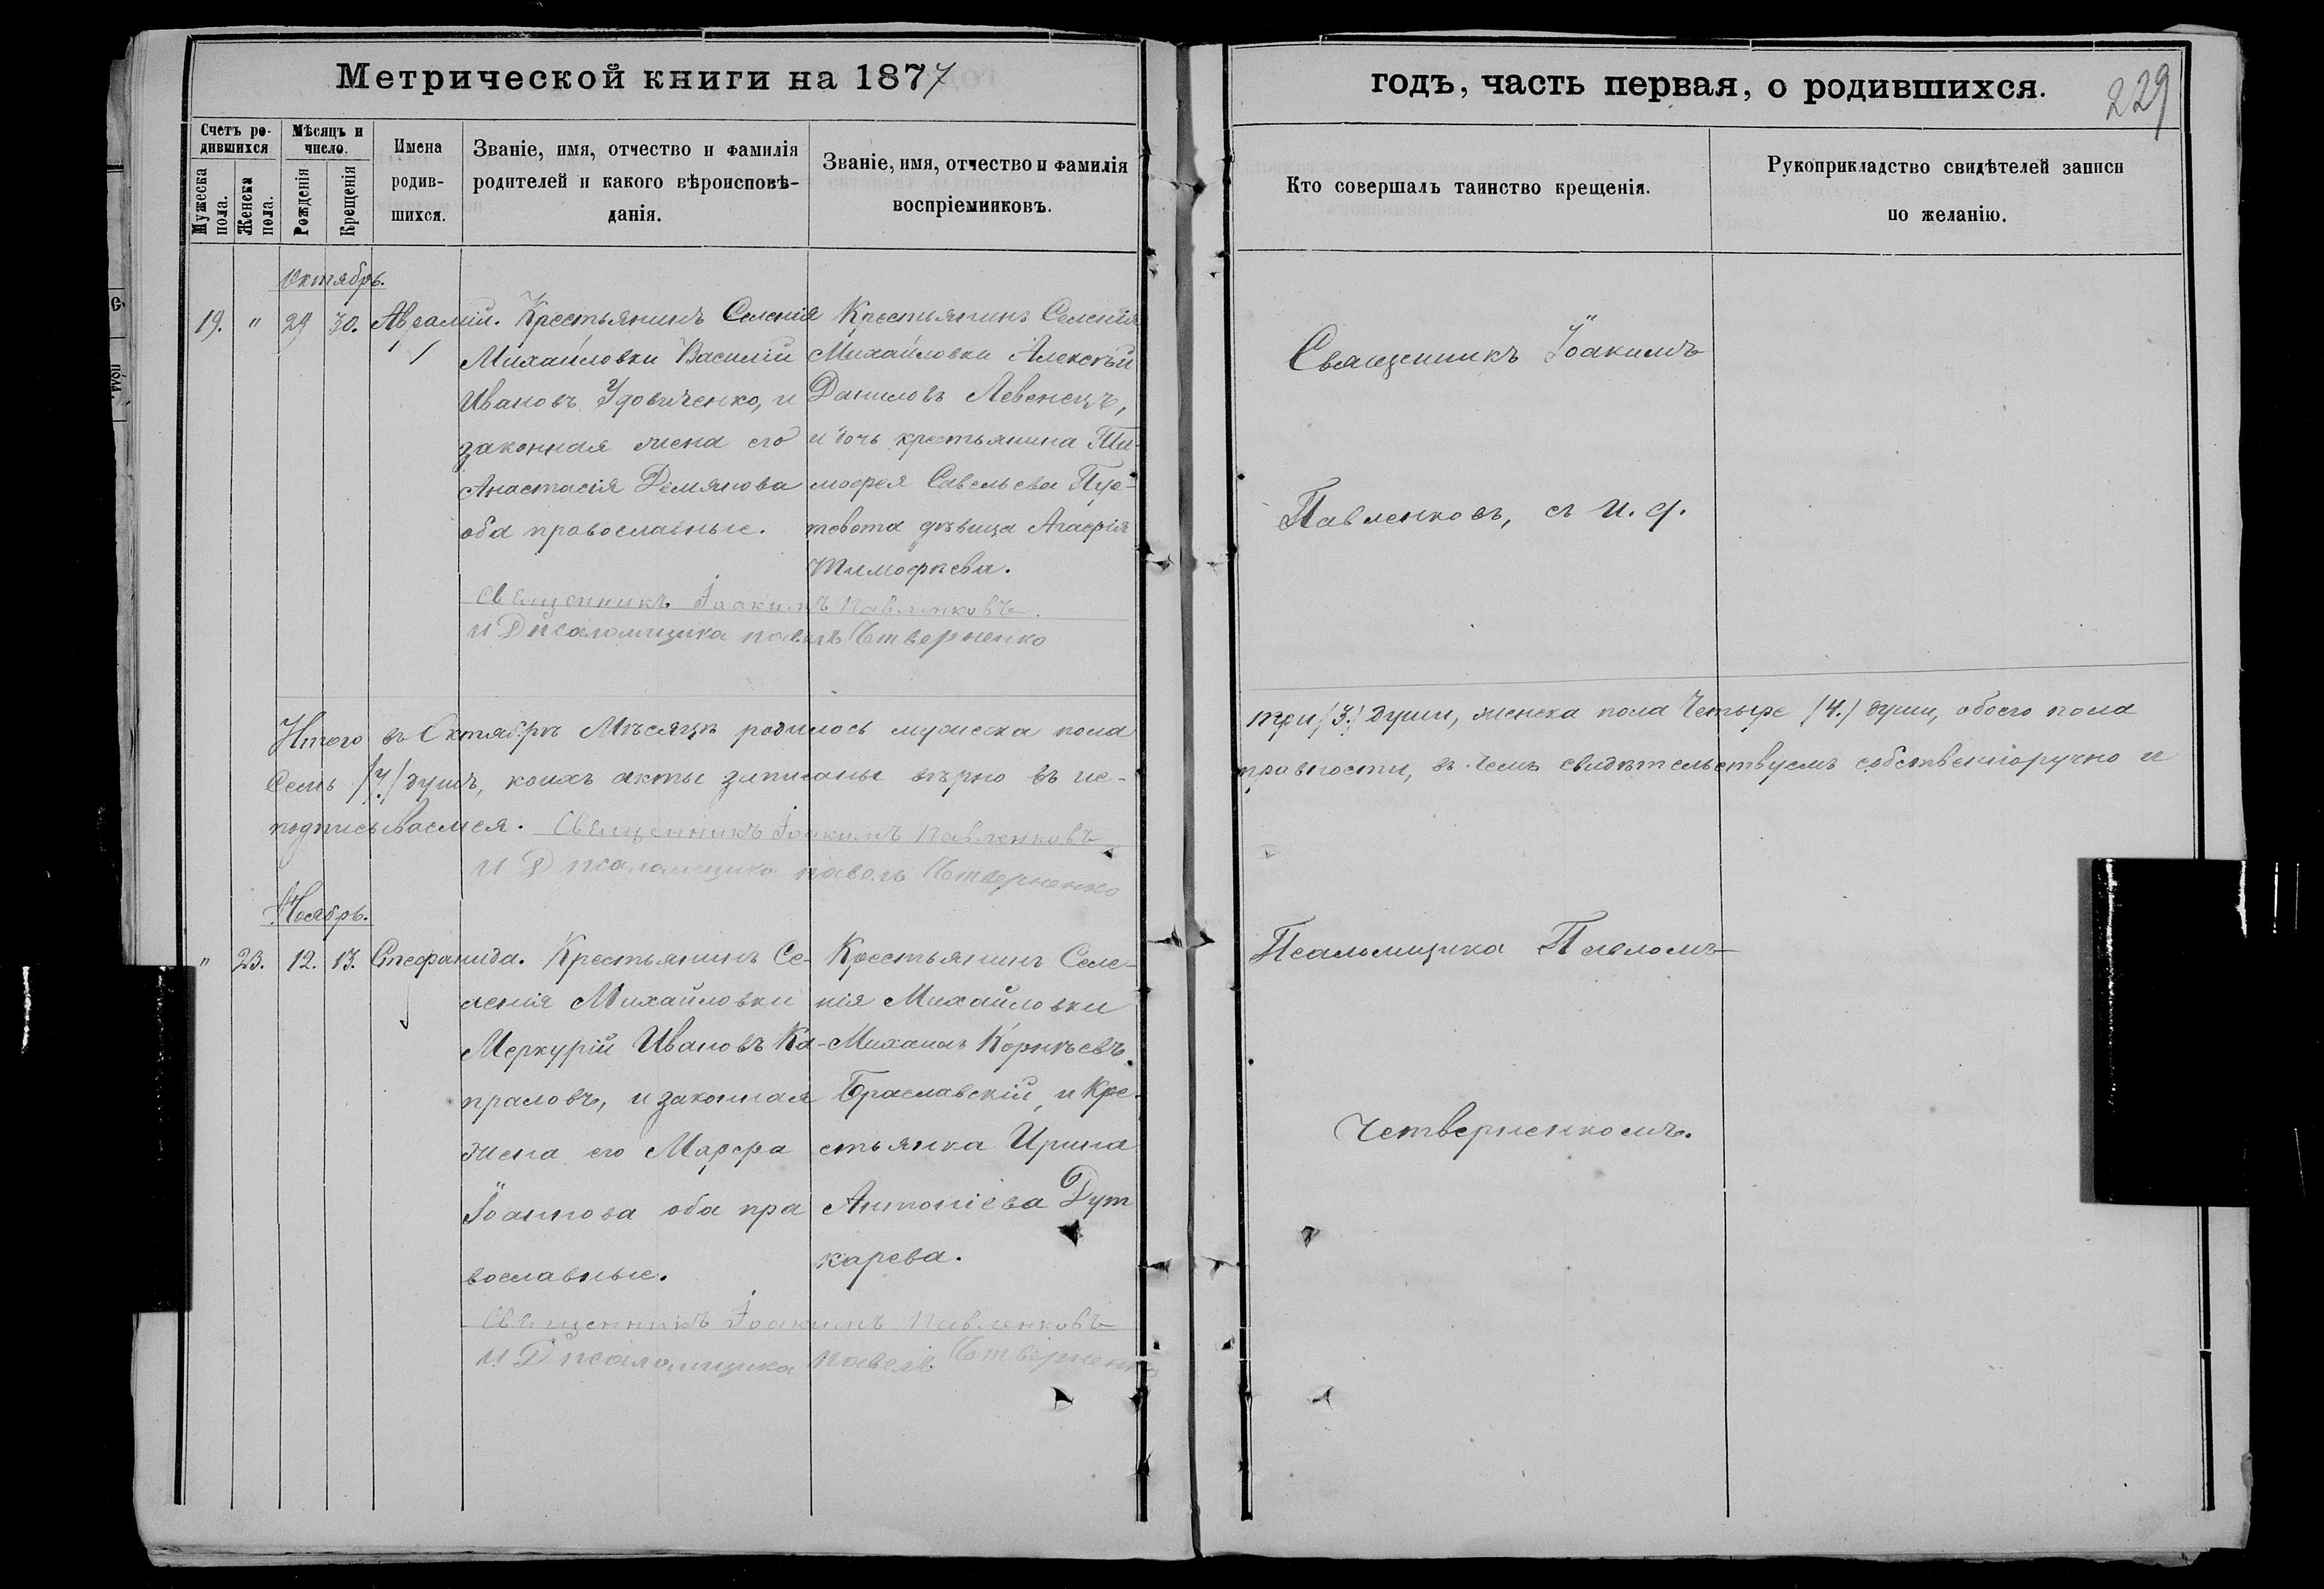 Метрической книги на 1877
годъ, часть первая, о родившихся.
229
Счетъ ро-
дившихся
Мужеска
пола.
Женска
пола.
Мѣсяцъ и
число.
Рожденія
Крещенія
Имена
родив-
шихся.
Званіе, имя, отчество и фамилія
родителей и какого вѣроисповѣ-
данія.
Званіе, имя, отчество и фамилія
воспріемниковъ.
Кто совершалъ таинство крещенія.
Рукоприкладство свидѣтелей записи
по желанію.
Октябрь.
19. " 29 30. Аврамій.
Крестьянинъ Селенія
Михайловки Василій
Ивановъ Удовиченко, и
законная жена его
Анастасія Демянова
оба православные.
Крестьянинъ Селенія
Михайловки Алексѣй
Даниловъ Левенецъ,
и дочь крестьянина Ти-
мофея Савельева
дѣвица Агафія
Тимофеева.
Священникъ Іоакимъ Павленковъ
и Д псаломщика Павелъ Четверненко
Священникъ Іоакимъ
Павленковъ, съ и. д.
Итого въ Октябрѣ Мѣсяцѣ родилось мужеска пола
три /3./ души, женска пола Четыре /4./ души, обоего пола
Семь /7/ душъ, коихъ акты записаны вѣрно въ ис-
правности, въ чемъ свидѣтельствуемъ собственноручно и
подписываемся. Священникъ Іоакимъ Павленковъ
и Д псаломщика Павелъ Четверненко
Ноябрь.
" 23. 12. 13. Стефанида.
Крестьянинъ Се-
ленія Михайловки
Меркурій Ивановъ Ка-
праловъ, и законная
жена его Марфа
Іоаннова оба пра
вославные.
Крестьянинъ Селе-
нія Михайловки
Михаилъ Корнѣевъ
Браславскій, и Кре-
стьянка Ирина
Антоніева Дут
карева.
Священникъ Іоакимъ Павленковъ
и Д псаломщика Павелъ Четверненко
Псаломщика Павломъ
Четверненкомъ.